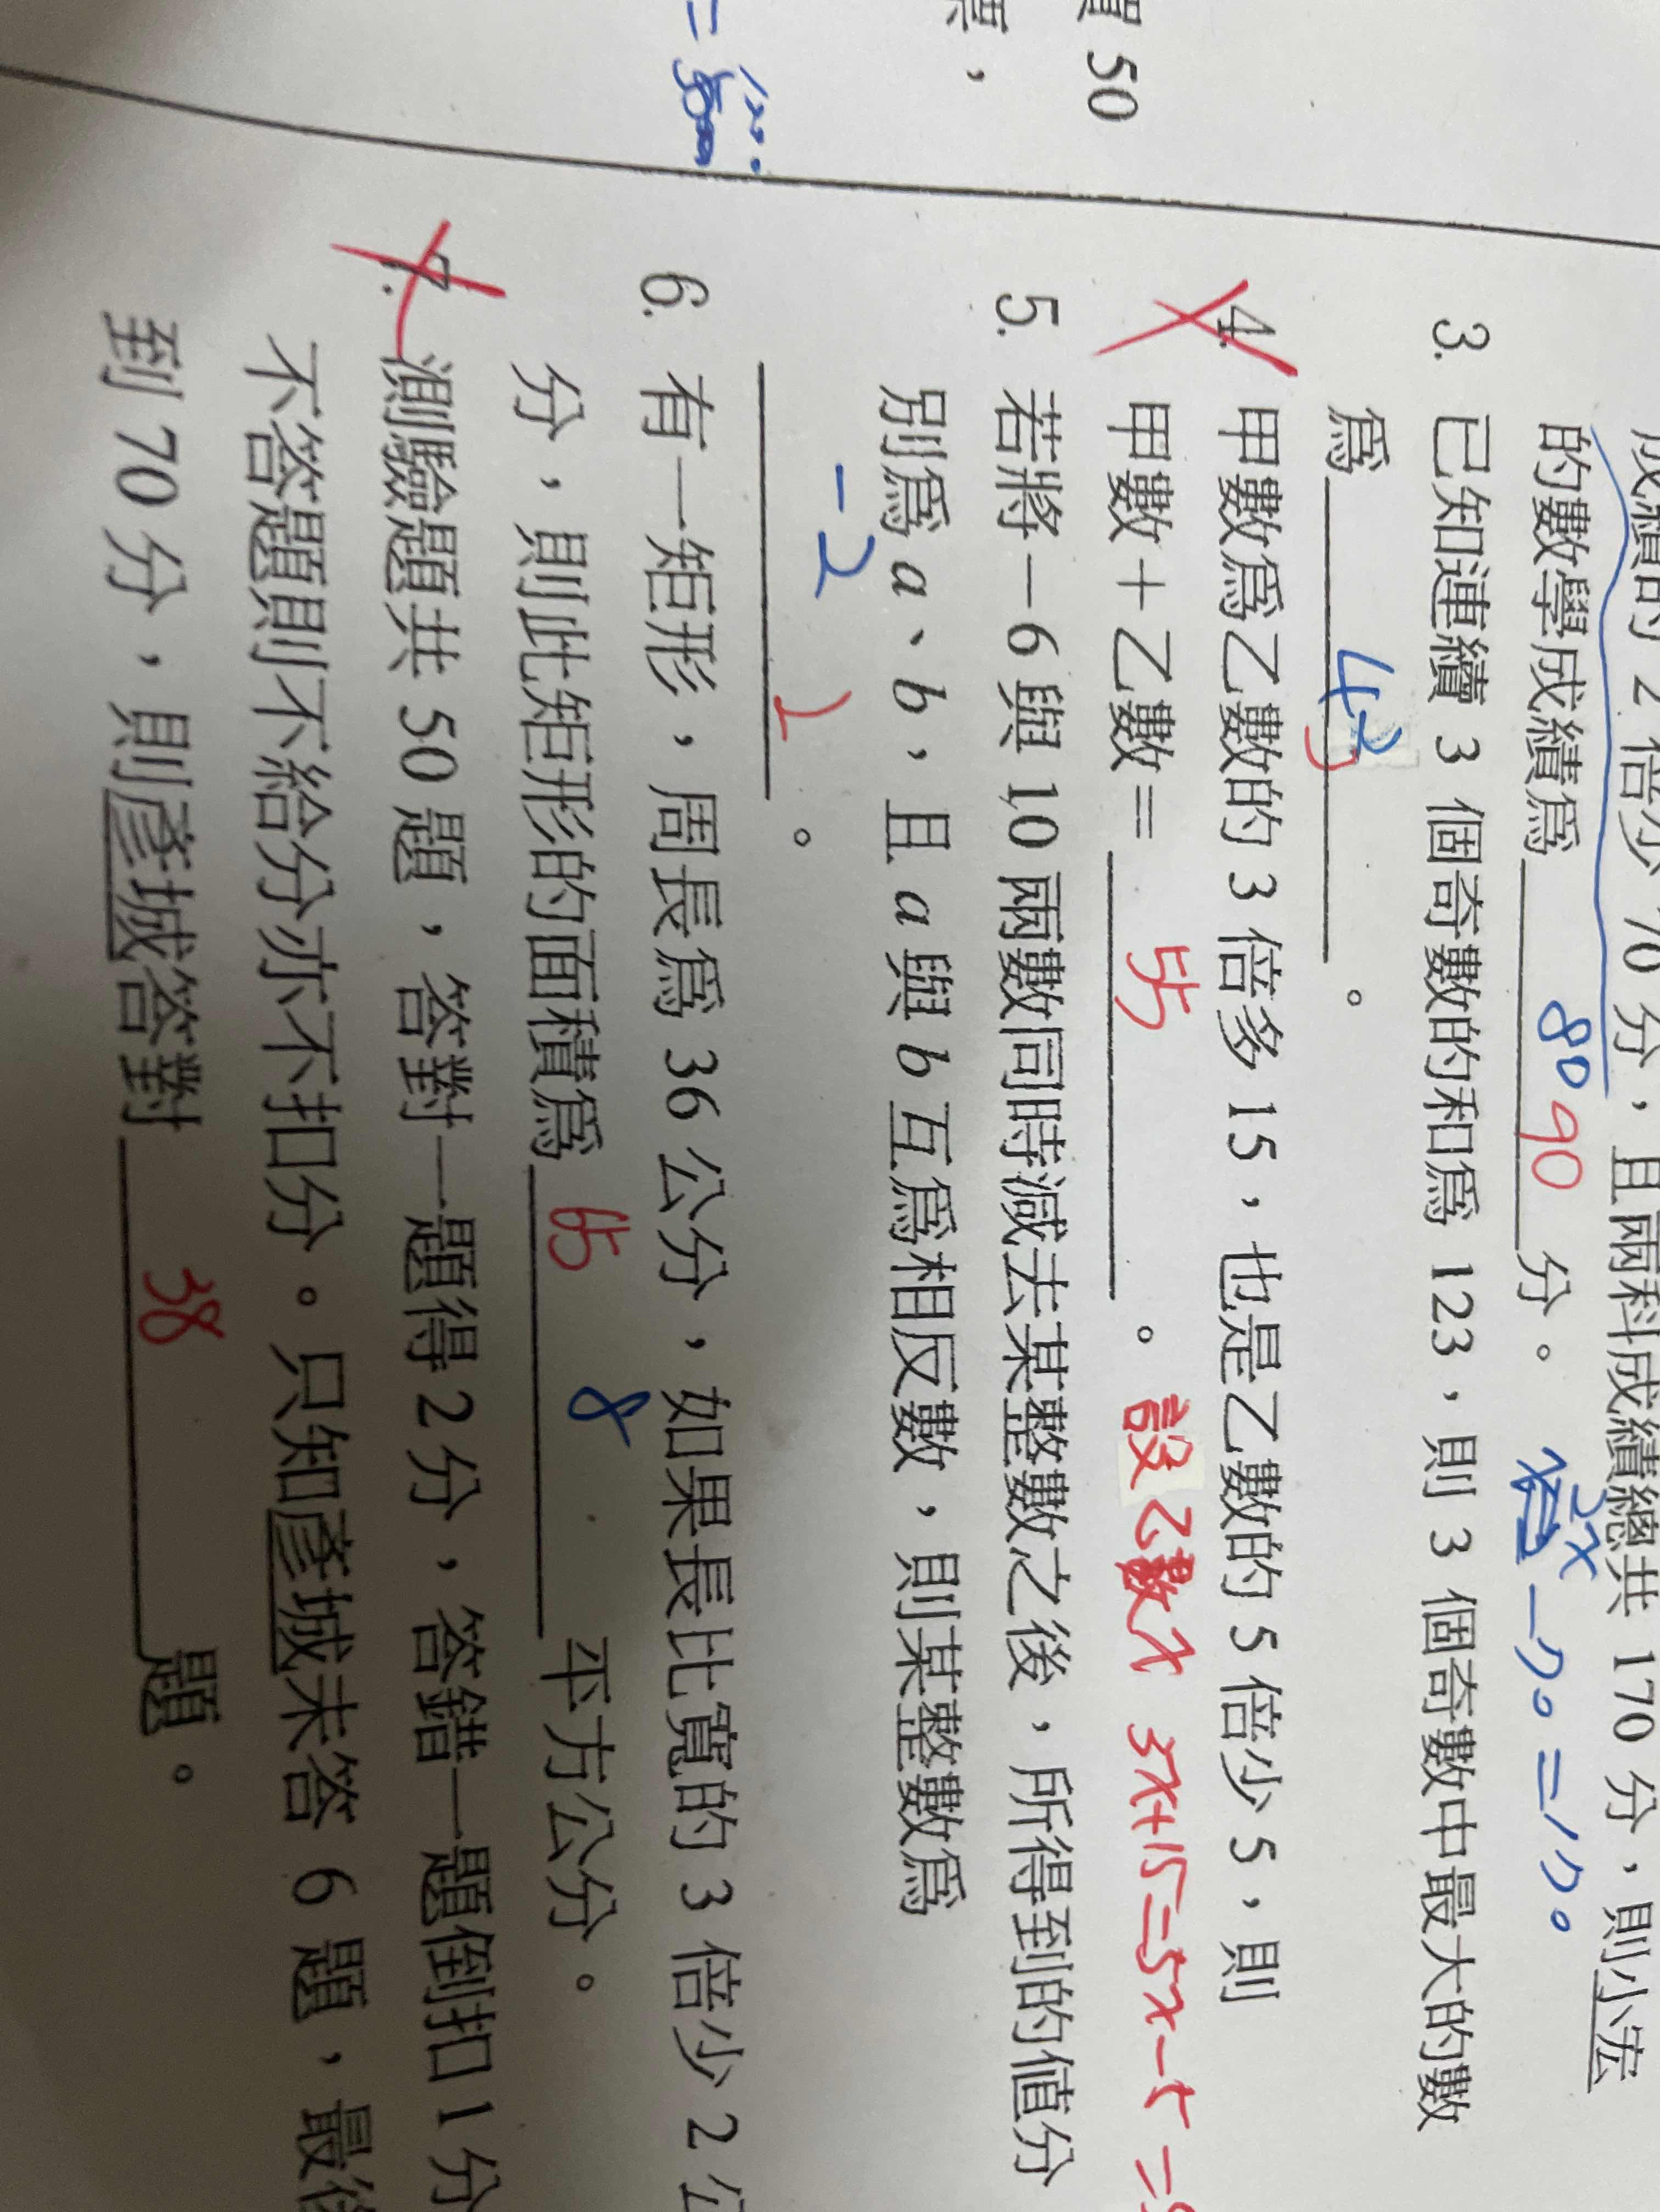 50
成績的 2 倍少 70 分，且兩科成績總共 170 分，則小宏
的數學成績為 80 90 分。 2x －70＝170
3. 已知連續 3 個奇數的和為 123，則 3 個奇數中最大的數
為 43 。
4. 甲數為乙數的 3 倍多 15，也是乙數的 5 倍少 5，則
甲數＋乙數＝ 55 。 設乙數x 3x+15=5x-5 =
5. 若將－6 與 10 兩數同時減去某整數之後，所得到的值分
別為 a、b，且 a 與 b 互為相反數，則某整數為
-2 2 。
6. 有一矩形，周長為 36 公分，如果長比寬的 3 倍少 2 公
分，則此矩形的面積為 65 8 平方公分。
7. 測驗題共 50 題，答對一題得 2 分，答錯一題倒扣 1 分
不答題則不給分亦不扣分。只知彥城未答 6 題，最後
到 70 分，則彥城答對 38 題。